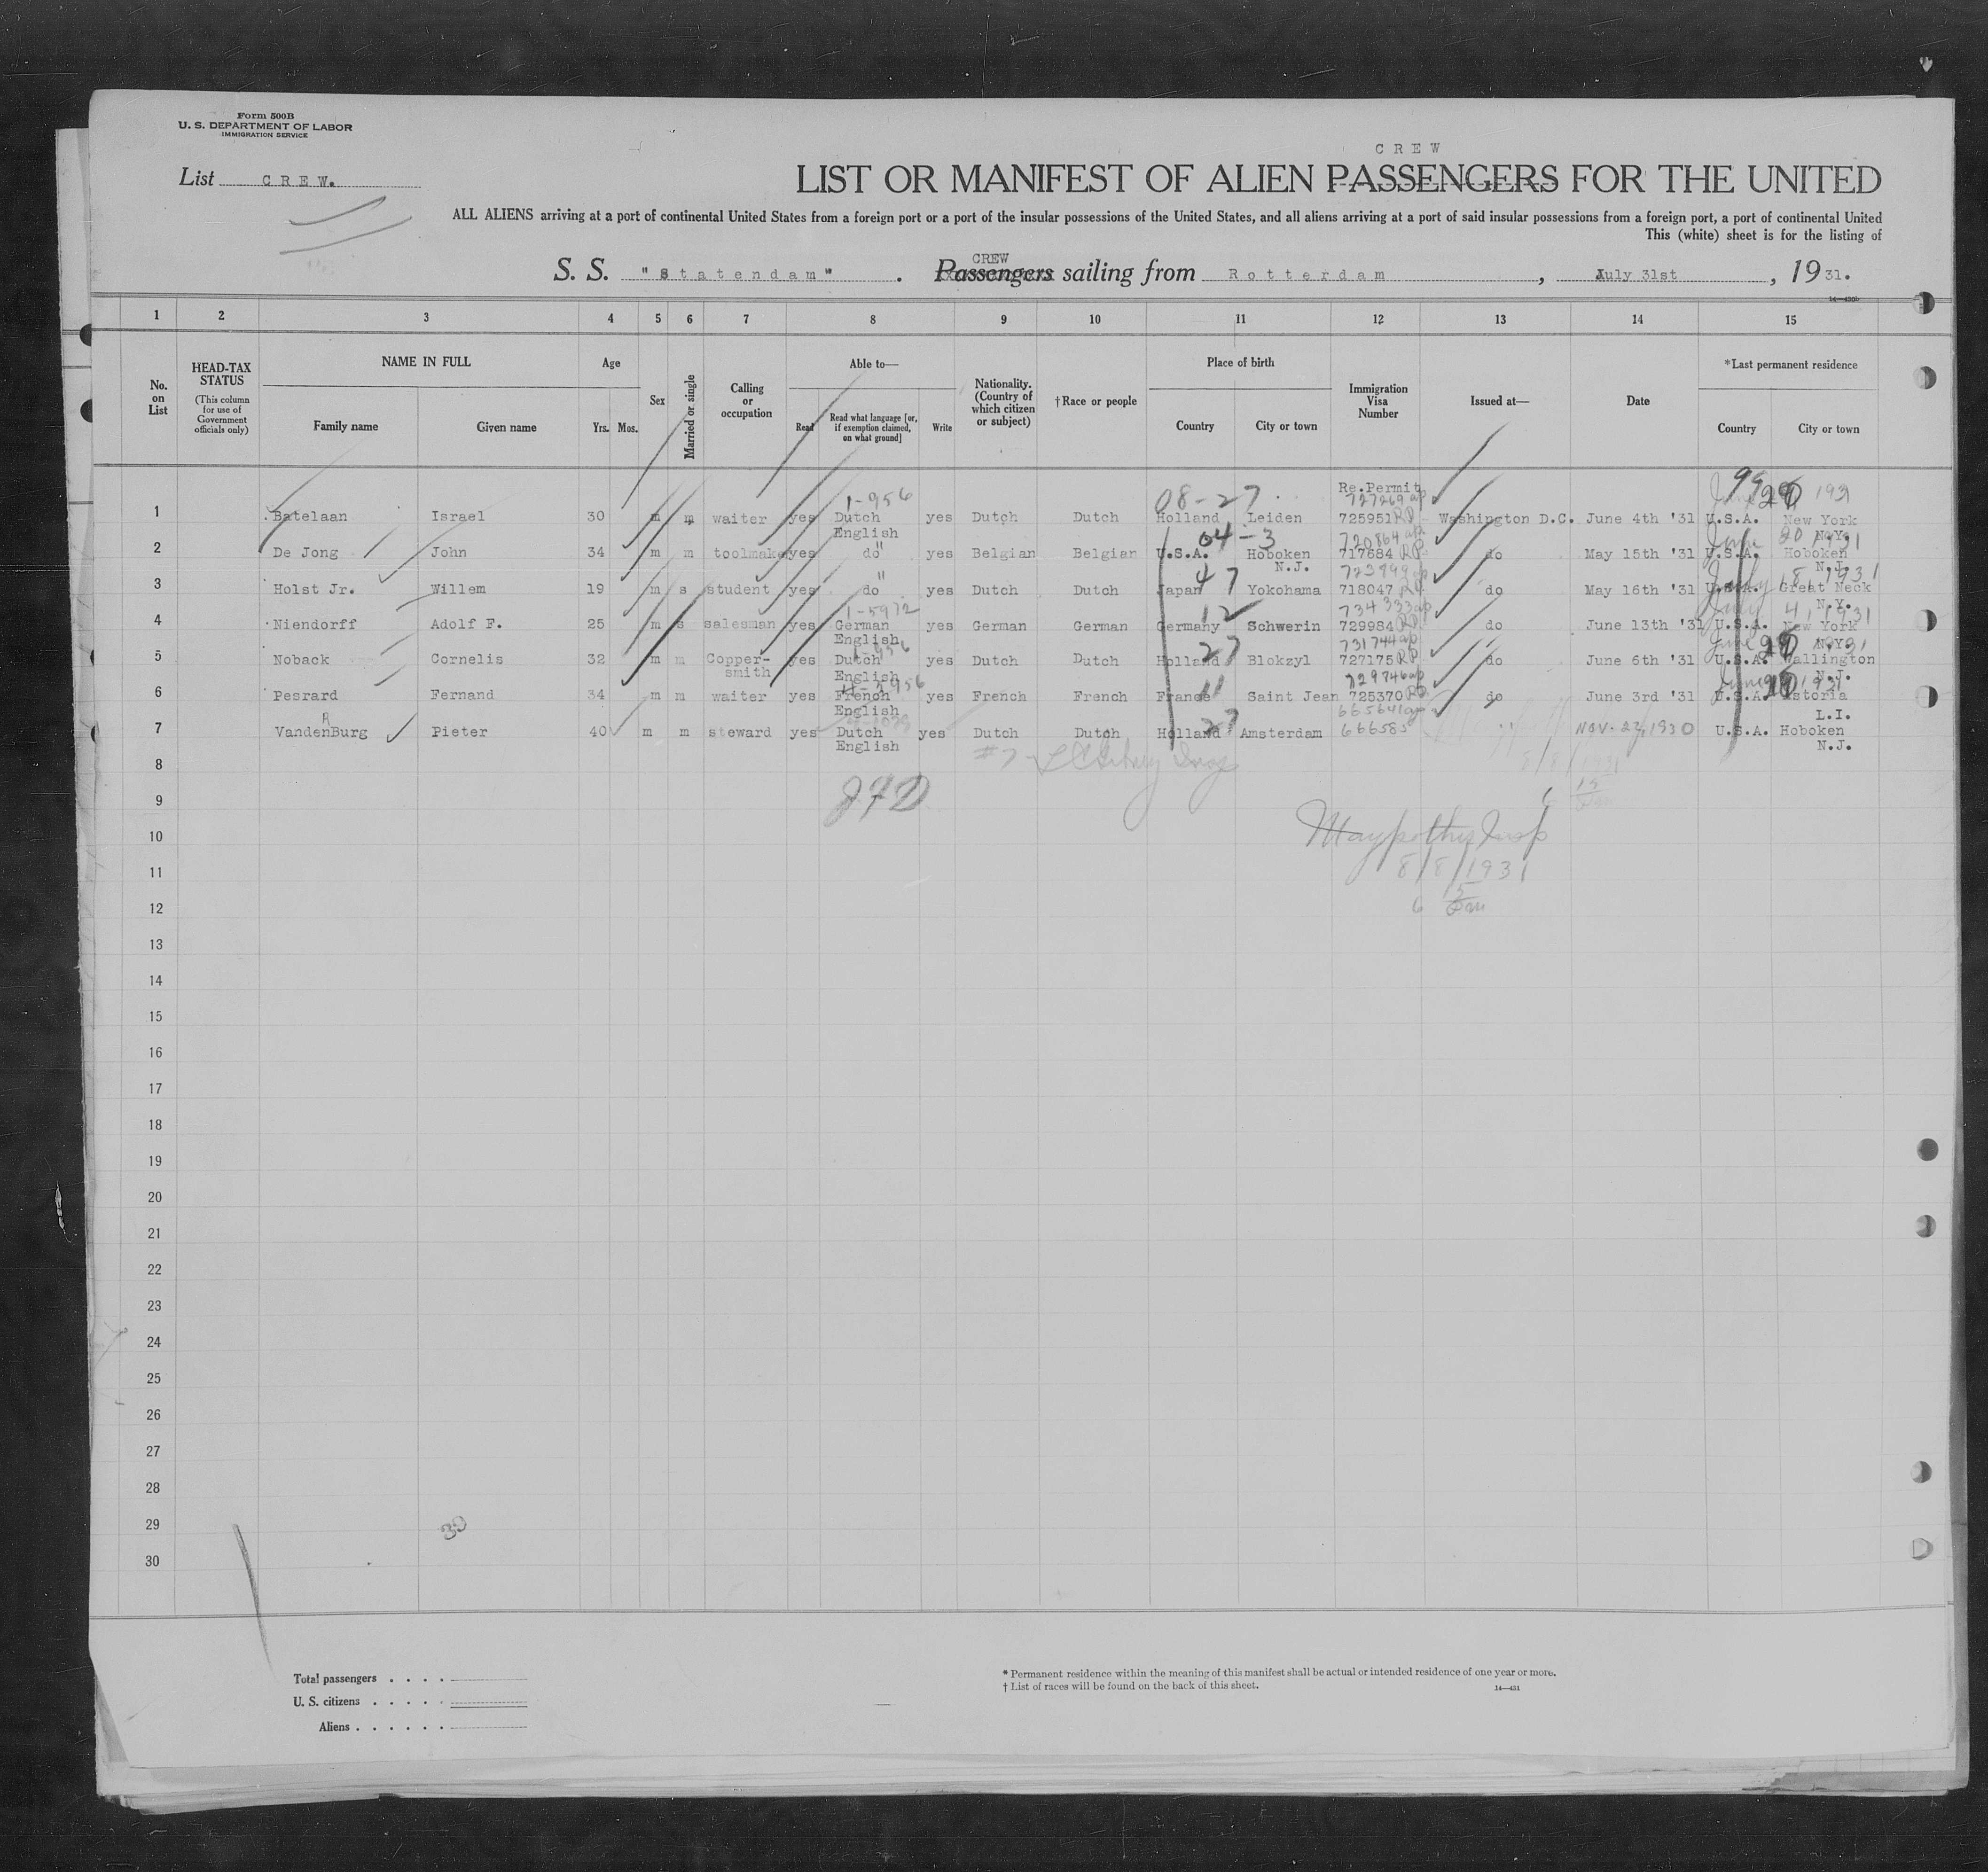 Form 500B
U. S. DEPARTMENT OF LABOR
IMMIGRATION SERVICE
List CREW.
CREW
LIST OR MANIFEST OF ALIEN PASSENGERS FOR THE UNITED
ALL ALIENS arriving at a port of continental United States from a foreign port or a port of the insular possessions of the United States, and all aliens arriving at a port of said insular possessions from a foreign port, a port of continental United
This (white) sheet is for the listing of
CREW
S. S. "Statendam". Passengers sailing from Rotterdam, July 31st, 1931.
1 2 3 4 5 6 7 8 9 10 11 12 13 14 15
No. on List
HEAD-TAX STATUS (This column for use of Government officials only)
NAME IN FULL Family name Given name
Age Yrs. Mos.
Sex
Married or single
Calling or occupation
Able to— Read Read what language [or, if exemption claimed, on what ground] Write
Nationality. (Country of which citizen or subject)
†Race or people
Place of birth Country City or town
Immigration Visa Number
Issued at—
Date
*Last permanent residence Country City or town
1-956 08-27. Re.Permit 99
727269
1 Batelaan Israel 30 m m waiter yes Dutch English yes Dutch Dutch Holland Leiden 725951 RP Washington D.C. June 4th '31 U.S.A. New York N.Y.
04-3 720864
2 De Jong John 34 m m toolmake yes do" yes Belgian Belgian U.S.A. Hoboken N.J. 717684 RP do May 15th '31 U.S.A. Hoboken N.J.
47
3 Holst Jr. Willem 19 m s student yes do" yes Dutch Dutch Japan Yokohama 718047 do May 16th '31 U.S.A. Great Neck N.Y.
1-5972 12 734333
4 Niendorff Adolf F. 25 m s salesman yes German English yes German German Germany Schwerin 729984 RP do June 13th '31 U.S.A. New York N.Y.
27 731744
5 Noback Cornelis 32 m m Copper-smith yes Dutch English yes Dutch Dutch Holland Blokzyl 727175 RP do June 6th '31 U.S.A. Wallington N.J.
11 729746
6 Pesrard Fernand 34 m m waiter yes French English yes French French France Saint Jean 725370 RP do June 3rd '31 U.S.A. Astoria L.I.
27 665641
7 VandenBurg Pieter 40 m m steward yes Dutch English yes Dutch Dutch Holland Amsterdam 666585 " Nov. 22, 1930 U.S.A. Hoboken N.J.
8
#7
9
JFD
10
11
8/8/1931
12
13
14
15
16
17
18
19
20
21
22
23
24
25
26
27
28
29
30
30
Total passengers . . . .
U. S. citizens . . . . .
Aliens . . . . . .
* Permanent residence within the meaning of this manifest shall be actual or intended residence of one year or more.
† List of races will be found on the back of this sheet.
14—431